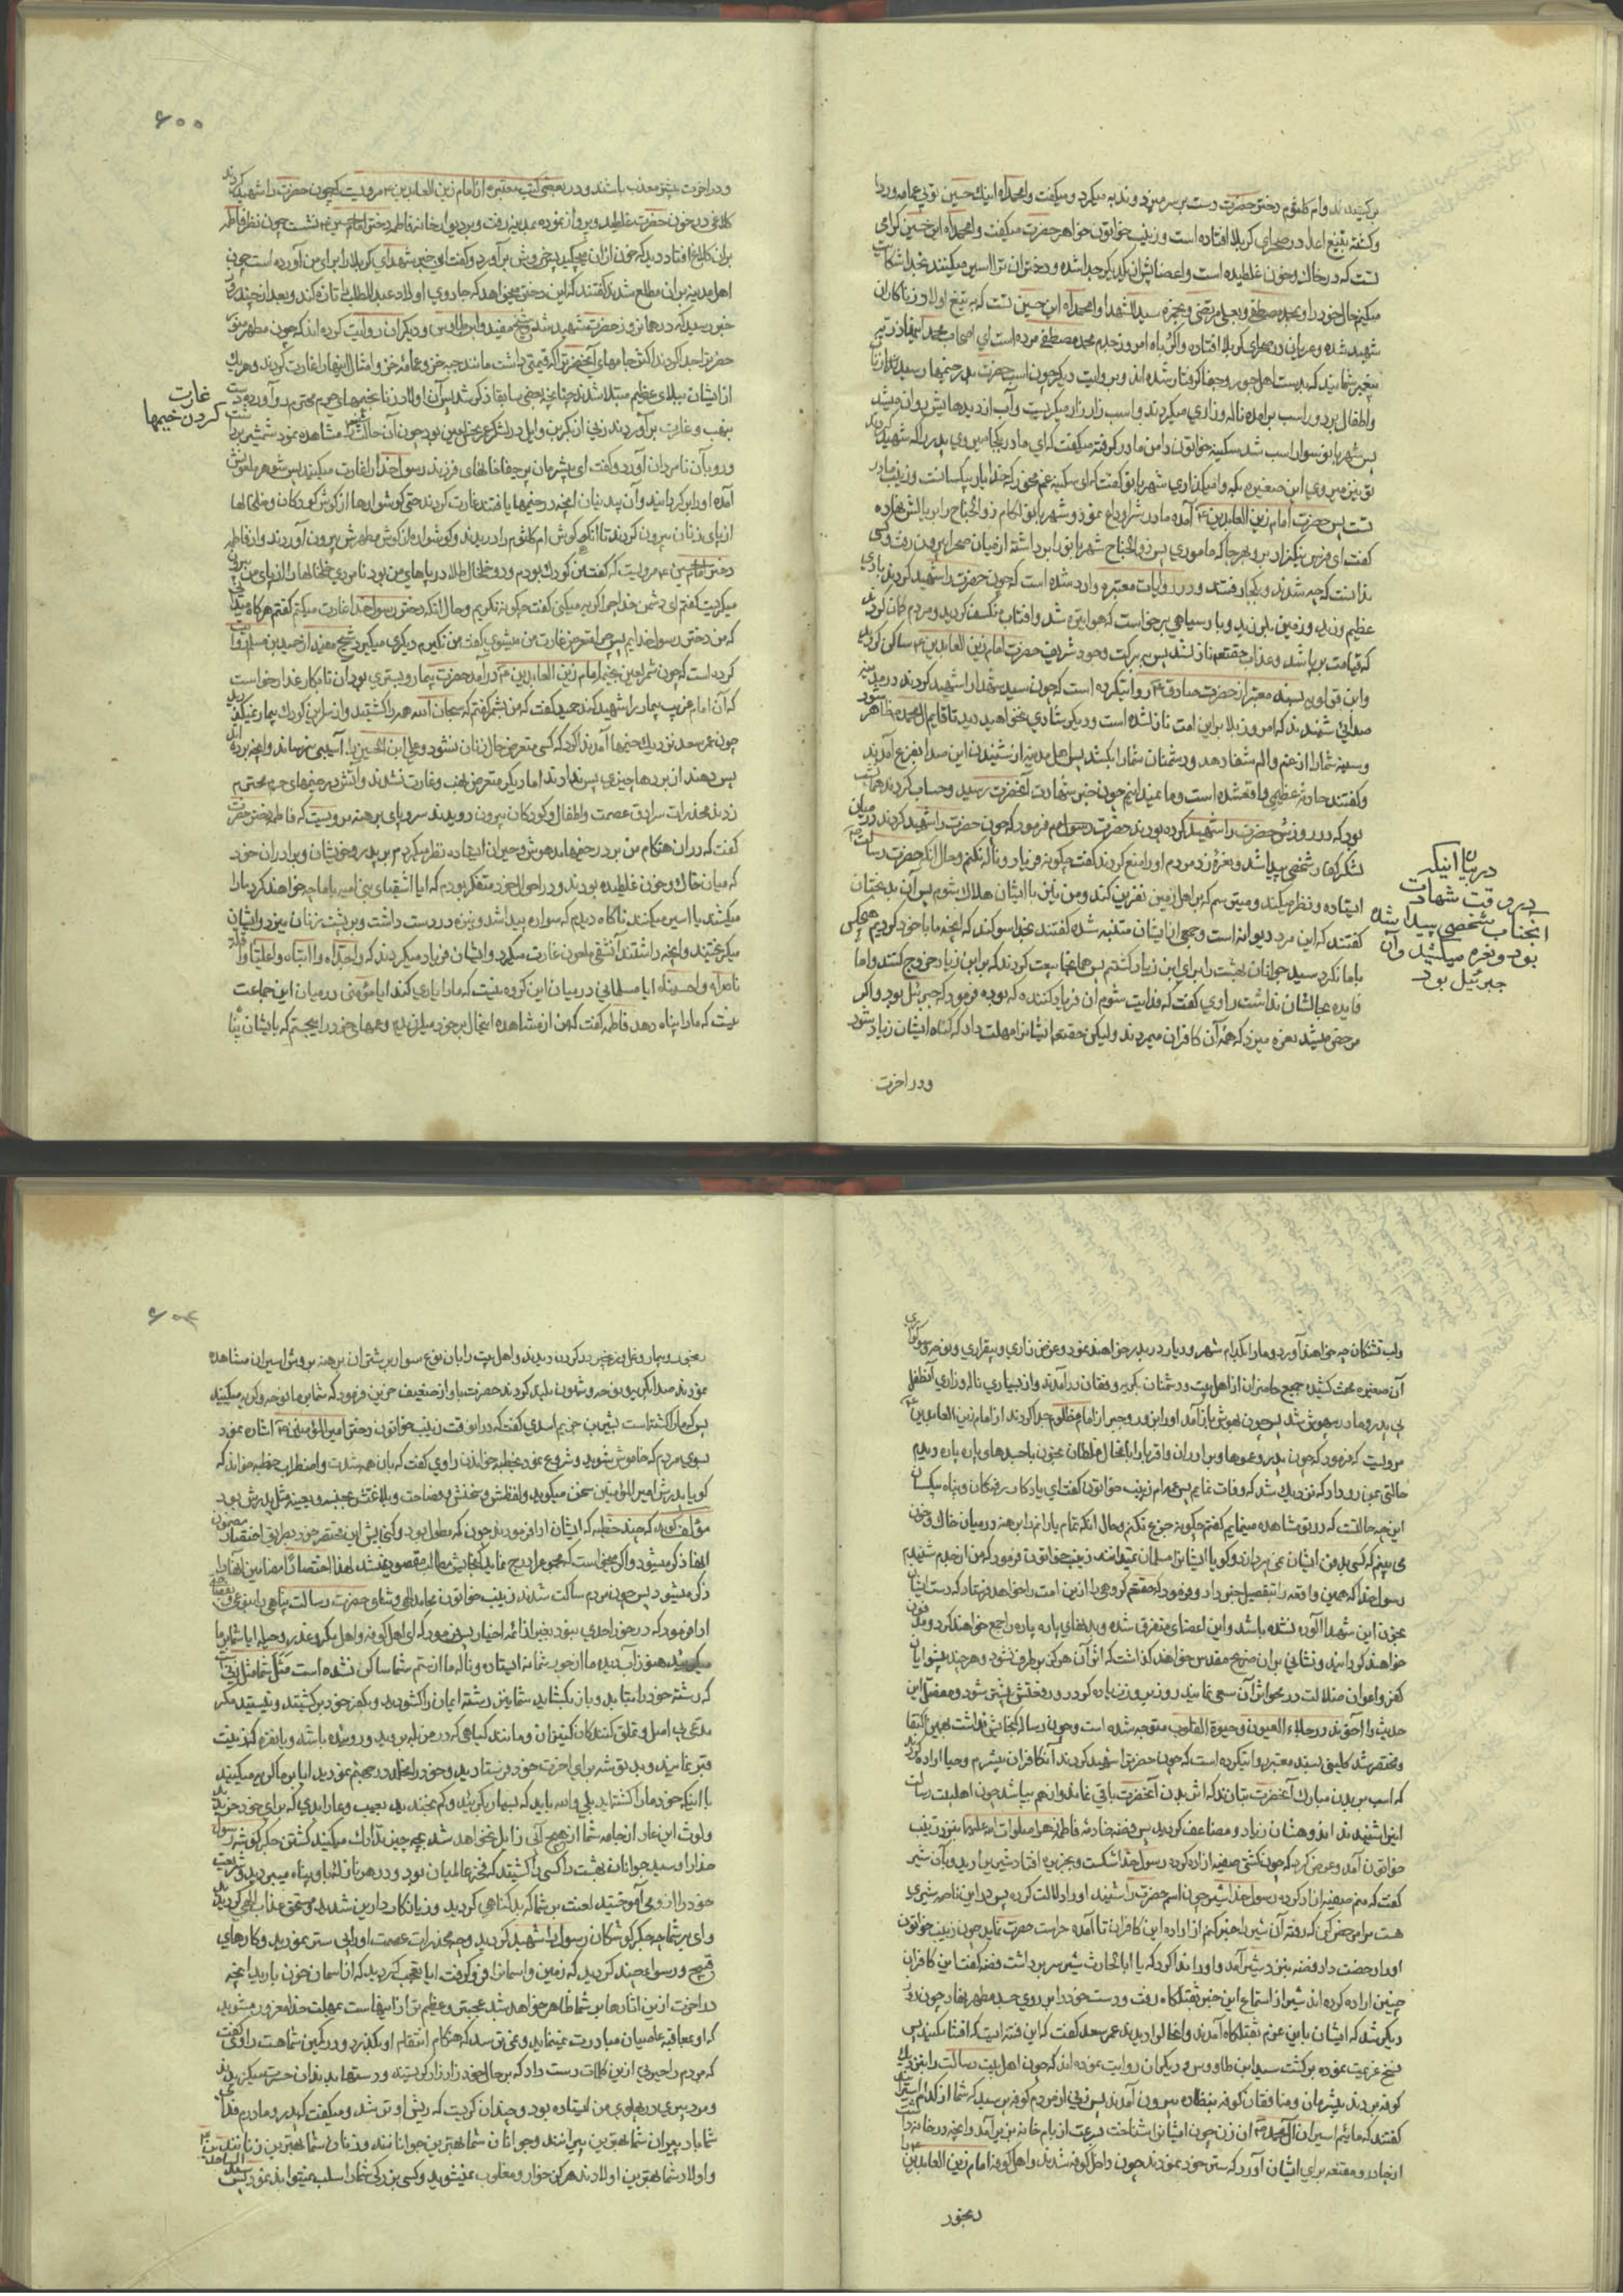 برکشیدند و ام کلثوم دختر حضرت دست بر سر میزد و ندبه میکرد و میکفت وا محمداه اینک حسین تو بی عمامه و ردا
و کشته بتیغ اعدا در صحرای کربلا افتاده است و زینب خواتون خواهر حضرت میکفت وا محمداه این حسین کرامی
تست که در خاک و خون غلطیده است و اعضایش از یکدیکر جدا شده و دختران ترا اسیر میکنند بخدا شکایت
میکنم حال خود را و بمحمد مصطفی و بعلی مرتضی و بحمزه سید الشهدا وا محمداه این حسین تست که به تیغ اولاد زناکاران
شهید شده و عریان در صحرای کربلا افتاده واکرباه امروز جدم محمد مصطفی مرده است ای اصحاب محمد اینها ذریه
پیغمبر شمایند که بدست اهل جور و جفا کرفتار شده اند و بروایت دیکر چون اسب حضرت بدر خیمها رسید زنان
و اطفال بر دور اسب برآمده ناله و زاری میکردند و اسب زار زار میکریست و آب از دیدهایش روان میشد
پس شهربانو سوار اسب شد سکینه خواتون دامن مادر کرفته میکفت که ای مادر بکجا میروی پدر را که شهید کردند
تو نیز میروی این صغیره بکه وا میکذاری شهربانو کفت که ای سکینه غم مخور که خدا یار بیکسانست و زینب مادر
تست پس حضرت امام زین العابدین ۴ آمده مادرش را وداع نمود و شهربانو لکام ذوالجناح را بر بالش نهاده
کفت ای فرس نیکزاد برو بهر جا که ماموری پس ذوالجناح شهربانو را برداشته از میان صحرا بیرون رفت و کسی
ندانست که چه شدند و بکجا رفتند و در روایات معتبره وارد شده است که چون حضرت را شهید کردند بادی
عظیم وزید و زمین بلرزید و باد سیاهی برخواست که هوا تیره شد و افتاب منکسف کردید و مردم کمان کردند
که قیامت برپا شد و عذاب حقتعالی نازل شد پس ببرکت وجود شریف حضرت امام زین العابدین ۴ ساکن کردید
و ابن قولویه بسند معتبر از حضرت صادق ۴ روایتکرده است که چون سید شهدا را شهید کردند در مدینه
صدائی شنیدند که امروز بلا بر این امت نازلشده است و دیکر شادی نخواهید دید تا قایم آل محمد ظاهر شود
و سینه شما را از غم و الم شفا دهد و دشمنان شما را بکشد پس اهل مدینه از شنیدن این صدا بفزع آمدند
و کفتند حادثهٔ عظیمی واقعشده است و ما نمیدانیم چون خبر شهادت آنحضرت رسید و حساب کردند همان شب
بود که در روزش حضرت را شهید کرده بودند حضرت رسول ص فرمود که چون حضرت را شهید کردند در میان
لشکر کفار شخصی پیدا شد و نعرهٔ زد مردم او را منع کردند کفت چکونه فریاد و ناله نکنم و حال آنکه حضرت رسالت ص
ایستاده و نظر میکند و میترسم که بر اهل زمین نفرین کند و من نیز با ایشان هلاک شوم پس آن بدبختان
کفتند که این مرد دیوانه است و جمعی از ایشان متنبه شده کفتند بخدا سوکند که آنچه ما با خود کردیم هیچکس
با ما نکرد سید جوانان بهشت را برای ابن زیاد کشتیم پس همانجا بیعت کردند که بر ابن زیاد خروج کنند و اما
فایده بحالشان نداشت راوی کفت که فدایت شوم آن فریاد کننده که بوده فرمود که جبرئیل بود و اکر
مرخص میشد نعره میزد که همهٔ آن کافران میمردند و لیکن حقتعالی ایشانرا مهلت داد که کناه ایشان زیاد شود
و در اخرت
در بیان اینکه
در وقت شهادت
انجناب شخصی پیدا شده
بود و نعره میکشید و آن
جبرئیل بود
۶۰۰
و در اخرت بیشتر معذب باشند و در بعضی کتب معتبره از امام زین العابدین ۴ مرویست که چون حضرت را شهید کردند
کلاغی در خون حضرت غلطید و پرواز نموده بمدینه رفت و بر دیوار خانه فاطمه دختر امام حسین ۴ نشست چون نظر فاطمه
بران کلاغ افتاد دید که خون از ان میچکید پس خروش برآورد و کفت این خبر شهدای کربلا را برای من آورده است چون
اهل مدینه بر ان مطلع شدند کفتند که این دختر میخواهد که جادوی اولاد عبد المطلب را تازه کند و بعد از چند روز
خبر رسید که در همان روز حضرت شهید شده شیخ مفید و ابن طاوس و دیکران روایت کرده اند که چون سر مطهر منور
غارت
کردن خیمها
از ایشان ببلای عظیم مبتلا شدند چنانچه بعضی سابقا ذکر شد پس آن اولاد زنا بخیمهای حرم محترم رو آورده دست
آمده او را بر کردانید و آن بیدینان آنچه در خیمها یافتند غارت کردند حتی کوشوارها از کوش کودکان و خلخالها
از پای زنان بیرون کردند تا آنکه کوش ام کلثوم را دریدند و کوشواره از کوش مطهرش بیرون آوردند و از فاطمه
دختر امام حسین ۴ مرویست که کفت من کودک بودم و دو خلخال طلا در پاهای من بود نامردی خلخالها را از پای من بیرون
میکرد و میکریست کفتم ای دشمن خدا چرا کریه میکنی کفت چکونه نکریم و حال آنکه دختر رسول خدا را غارت میکنم کفتم هرکاه میدانی
که من دختر رسول خدایم پس چرا متعرض غارت من میشوی کفت من نکیرم دیکری میکیرد شیخ مفید از حمید بن مسلم روایت
کرده است که چون شمر لعین بخیمهٔ امام زین العابدین ۴ درآمد حضرت بیمار و بستری بود آن نابکار غدار خواست
که آن امام غریب بیمار را شهید کند حمید کفت که من بشمر کفتم که سبحان الله همه را کشتید و از سر این کودک بیمار نمیکذرید
چون عمر سعد نزدیک خیمها آمد ندا کرد که کسی متعرض حال زنان نشود و علی ابن الحسین را آسیبی نرساند و آنچه برده اند
پس دهند از بردها چیزی پس ندادند اما دیکر متعرض نهب و غارت نشدند و آتش در خیمهای حرم محترم
زدند مخدرات سرادق عصمت و اطفال و کودکان بیرون دویدند سر و پای برهنه مرویست که فاطمه دختر حضرت
کفت که در ان هنکام من بر در خیمها مدهوش و حیران ایستاده نظر میکردم بر پدر و خویشان و برادران خود
که میان خاک و خون غلطیده بودند و در احوال خود متفکر بودم که ایا اشقیای بنی امیه با ما چه خواهند کرد ما را
میکشند یا اسیر میکنند ناکاه دیدم که سواره پیدا شد و نیزه در دست داشت و بر پشت زنان میزد و ایشان
میکریختند و آنچه داشتند آن شقی ملعون غارت میکرد و ایشان فریاد میکردند که واجداه وا ابتاه واعلیاه واقله
ناصراه واحسناه ایا مسلمانی در میان این کروه نیست که ما را یاری کند ایا مؤمنی در میان این جماعت
نیست که ما را پناه دهد فاطمه کفت که من از مشاهده اینحال بر خود میلرزیدم و عمهای خود را میجستم که بایشان پناه
و ابن تشنکان چه خواهند آورد و ما را بکدام شهر و دیار در بدر خواهند نمود و عوض زاری و بیقراری و نوحه و سوکواری
آن صغیره محنت کشیده جمیع حاضران از اهل بیت و دشمنان بکریه و فغان درآمدند و از بسیاری ناله و زاری آنطفل
مرویست که فرمود که چون پدر و عموها و برادران و اقربا را بآنحال غلطان بخون با جسدهای پاره پاره دیدم
حالتی بمن رو داد که نزدیک شد که وفات نمایم پس عمه ام زینب خواتون کفت ای یادکار رفتکان و پناه بیکسان
این چه حالتست که در تو مشاهده مینمایم کفتم چکونه جزع نکنم و حال آنکه تمام یارانم را برهنه در میان خاک و خون
می بینم که کسی بدفن ایشان نمی پردازد و کویا ایشانرا مسلمان نمیدانند زینب خواتون فرمود که من از جدم شنیدم
رسول خدا که همین واقعه را بتفصیل خبر داد و فرمود که حقتعالی کروهی را از این امت را خواهد فرستاد که دست ایشان
بخون این شهدا آلوده نشده باشد و این اعضای متفرق شده و بدنهای پاره پاره را جمع خواهند کرد و مدفون
خواهند کردانید و نشانی بران ضریح مقدس خواهند کذاشت که اثر آن هرکز برطرف نشود و هر چند پیشوایان
کفر و اعوان ضلالت در محو اثر آن سعی نمایند روز بروز زیاده کردد و رفعتش بیشتر شود و مفصل این
حدیث را آخوند در جلاء العیون و حیوة القلوب متوجه شده است و چون رساله کنجایش نداشت بهمین اکتفا
و مختصر شد کلینی بسند معتبر روایتکرده است که چون حضرترا شهید کردند آنکافران بیشرم و حیا اراده کردند
که اسب بر بدن مبارک آنحضرت بتازند که اثر بدن آنحضرت باقی نماند و از هم بپاشد چون اهلبیت رسالت
اینرا شنیدند اندوهشان زیاد و مضاعف کردید پس فضه خادمهٔ فاطمه زهرا صلوات الله علیها بنزد زینب
خواتون آمد و عرض کرد که چون کشتی سفینه آزاد کرده رسول خدا شکست و بجزیره افتاد شیری باو رسید و بآن شیر
کفت که منم سفینه آزاد کرده رسول خدا شیر چون اسم حضرت را شنید او را دلالت کرده پس در این ناحیه شیری
هست مرا مرخص کن که رفته آن شیر را خبر کنم از اراده این کافران تا آمده حراست حضرت نماید چون زینب خواتون
او را رخصت داد فضه بنزد شیر آمد و او را ندا کرد که یا ابا الحارث شیر سر برداشت فضه کفت این کافران
چنین اراده کرده اند شیر از استماع این خبر بقتلکاه رفت و دست خود را بر روی جسد مطهر نهاد چون روز
دیکر شد که ایشان باین عزم بقتلکاه آمدند و اینحال را دیدند عمر سعد کفت که این فتنه ایست که افشا مکنید پس
فسخ عزیمت نموده برکشت سید ابن طاووس و دیکران روایت نموده اند که چون اهل بیت رسالت را بنزدیک
کوفه بردند بیشرمان و منافقان کوفه بنظاره بیرون آمدند پس زنی از مردم کوفه پرسید که شما از کدام اسیرانید
کفتند که مائیم اسیران آل محمد ص آن زن چون ایشانرا شناخت بسرعت از بام خانه بزیر آمد و آنچه در خانه داشت
از چادر و مقنعه برای ایشان آورد که ستر خود نمودند چون داخل کوفه شدند و اهل کوفه امام زین العابدین
رنجور
رنجور و بیمار و غل و زنجیر در کردن دیدند و اهل بیت را بان نوع سوار بر شتران برهنه بروش اسیران مشاهده
نمودند صدا بکریه و نوحه و شیون بلند کردند حضرت باواز ضعیف حزین فرمود که شما بر ما نوحه و کریه میکنید
پس که ما را کشته است بشیر بن خزیم اسدی کفت که در انوقت زینب خواتون دختر امیر المؤمنین ۴ اشاره نمود
بسوی مردم که خاموش شوید و شروع نمود بخطبه خواندن راوی کفت که بان همه شدت و اضطراب خطبه خواند که
کویا پدرش امیر المؤمنین سخن میکوید و لفظش و سخنش و فصاحت و بلاغتش بجنسه و بعینه مثل پدرش بود
ذکر میشود پس چون مردم ساکت شدند زینب خواتون محامد الهی و ثنای حضرت رسالت پناهی را بنوعی
میکریید هنوز آب دیده ما از جور شما نه ایستاده و ناله ما از ستم شما ساکن نشده است مثل شما مثل زنیست
که رشته خود را متابید و باز میکشاید شما نیز رشته ایمان را کشودید و بکفر خود برکشتید و نیستید مکر
مدعی بی اصل و تملق کنندکان کنیزان و مانند کیاهی که در مزبله روید و روئیده باشد و یا نقره که زینت
قبر نمایند و بد توشه برای اخرت خود فرستادید و خود را مخلد در جهنم نمودید ایا بر ما کریه میکنید
با اینکه خود ما را کشته اید بلی والله باید که بسیار بکریید و کم بخندید بعیب و عار ابدی که برای خود خریدید
و لوث این عار از جامه شما از هیچ آبی زایل نخواهد شد بچه چیز تدارک میکنید کشتن جکرکوشه رسول
خدا را و سید جوانان بهشت را کسی را کشتید که
وای بر شما چه جکرکوشکان رسول را شهید کردید و چه مخدرات عصمت او را بی ستر نمودید و کارهای
قبیح و رسوا بعمل کردید که زمین و آسمانرا فرو کرفت ایا تعجب کردید که از آسمان خون بارید آنچه
در اخرت از این اثارها بر شما ظاهر خواهد شد عجیبتر و عظیم تر از اینهاست بمهلت خدا مغرور مشوید
که او بمعاقبهٔ عاصیان مبادرت نمینماید و نمی ترسد که هنکام انتقام او بکذرد و در کمین شماست راوی کفت
که مردم را حیرتی از این کلمات دست داد که بر حال خود زار زار کریستند و دستها بدندان حسرت میکزیدند
و مرد پیری در پهلوی من ایستاده بود و چندان کریست که ریش او تر شد و میکفت که پدر و مادرم فدای
شما باد پیران شما بهترین پیرانند و جوانان شما بهترین جوانانند و زنان شما بهترین زنانند
و اولاد شما بهترین اولادند هرکز خوار و مغلوب نمیشوید و کسی بزرکی شما را سلب نمیتواند نمود پس